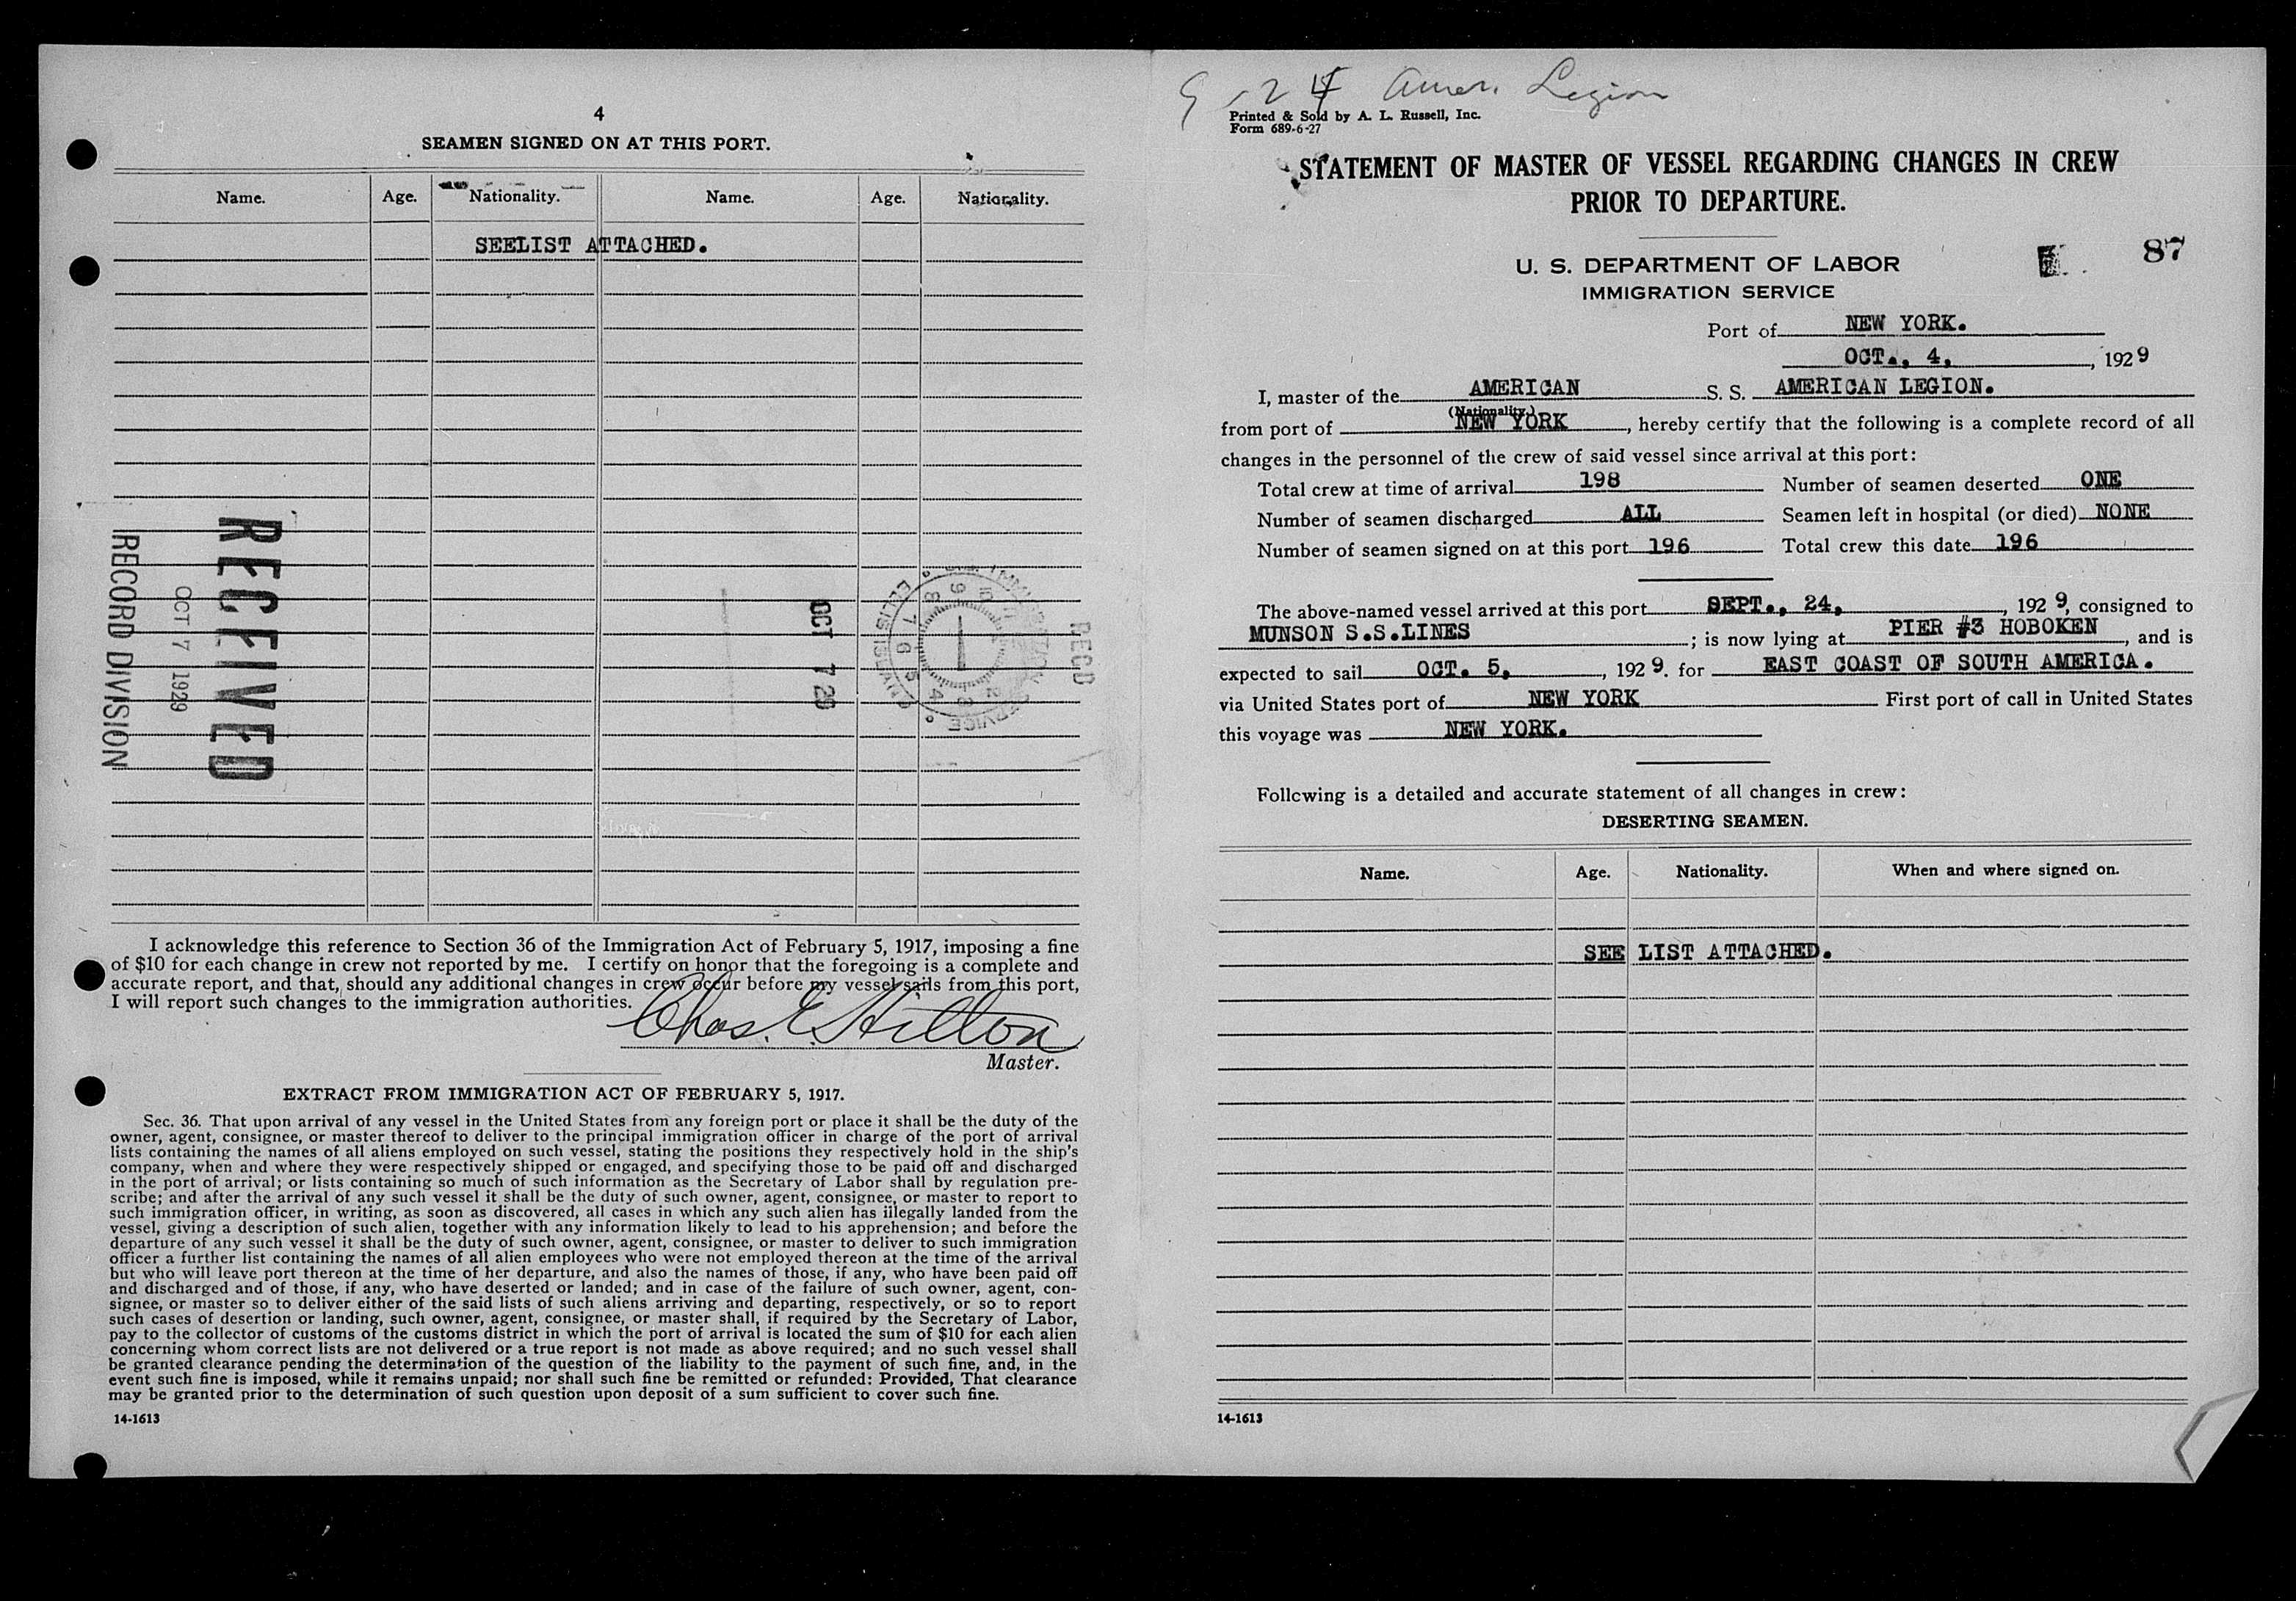 4
SEAMEN SIGNED ON AT THIS PORT.
Name. Age. Nationality. Name. Age. Nationality.
SEELIST ATTACHED.
RECEIVED
OCT 7 1929
RECORD DIVISION
OCT 7 29
ELLIS ISLAND
IMMIGRATION SERVICE
RECD
I acknowledge this reference to Section 36 of the Immigration Act of February 5, 1917, imposing a fine
of $10 for each change in crew not reported by me. I certify on honor that the foregoing is a complete and
accurate report, and that, should any additional changes in crew occur before my vessel sails from this port,
I will report such changes to the immigration authorities.
Chas. E. Hilton
Master.
EXTRACT FROM IMMIGRATION ACT OF FEBRUARY 5, 1917.
Sec. 36. That upon arrival of any vessel in the United States from any foreign port or place it shall be the duty of the
owner, agent, consignee, or master thereof to deliver to the principal immigration officer in charge of the port of arrival
lists containing the names of all aliens employed on such vessel, stating the positions they respectively hold in the ship's
company, when and where they were respectively shipped or engaged, and specifying those to be paid off and discharged
in the port of arrival; or lists containing so much of such information as the Secretary of Labor shall by regulation pre-
scribe; and after the arrival of any such vessel it shall be the duty of such owner, agent, consignee, or master to report to
such immigration officer, in writing, as soon as discovered, all cases in which any such alien has illegally landed from the
vessel, giving a description of such alien, together with any information likely to lead to his apprehension; and before the
departure of any such vessel it shall be the duty of such owner, agent, consignee, or master to deliver to such immigration
officer a further list containing the names of all alien employees who were not employed thereon at the time of the arrival
but who will leave port thereon at the time of her departure, and also the names of those, if any, who have been paid off
and discharged and of those, if any, who have deserted or landed; and in case of the failure of such owner, agent, con-
signee, or master so to deliver either of the said lists of such aliens arriving and departing, respectively, or so to report
such cases of desertion or landing, such owner, agent, consignee, or master shall, if required by the Secretary of Labor,
pay to the collector of customs of the customs district in which the port of arrival is located the sum of $10 for each alien
concerning whom correct lists are not delivered or a true report is not made as above required; and no such vessel shall
be granted clearance pending the determination of the question of the liability to the payment of such fine, and, in the
event such fine is imposed, while it remains unpaid; nor shall such fine be remitted or refunded: Provided, That clearance
may be granted prior to the determination of such question upon deposit of a sum sufficient to cover such fine.
14-1613
9-24 Amer. Legion
Printed & Sold by A. L. Russell, Inc.
Form 689-6-27
STATEMENT OF MASTER OF VESSEL REGARDING CHANGES IN CREW
PRIOR TO DEPARTURE.
87
U. S. DEPARTMENT OF LABOR
IMMIGRATION SERVICE
Port of NEW YORK.
OCT., 4, 1929
I, master of the AMERICAN S. S. AMERICAN LEGION.
(Nationality.)
from port of NEW YORK, hereby certify that the following is a complete record of all
changes in the personnel of the crew of said vessel since arrival at this port:
Total crew at time of arrival 198 Number of seamen deserted ONE
Number of seamen discharged ALL Seamen left in hospital (or died) NONE
Number of seamen signed on at this port 196 Total crew this date 196
The above-named vessel arrived at this port SEPT., 24, 1929, consigned to
MUNSON S.S.LINES; is now lying at PIER #3 HOBOKEN, and is
expected to sail OCT. 5, 1929. for EAST COAST OF SOUTH AMERICA.
via United States port of NEW YORK First port of call in United States
this voyage was NEW YORK.
Following is a detailed and accurate statement of all changes in crew:
DESERTING SEAMEN.
Name. Age. Nationality. When and where signed on.
SEE LIST ATTACHED.
14-1613